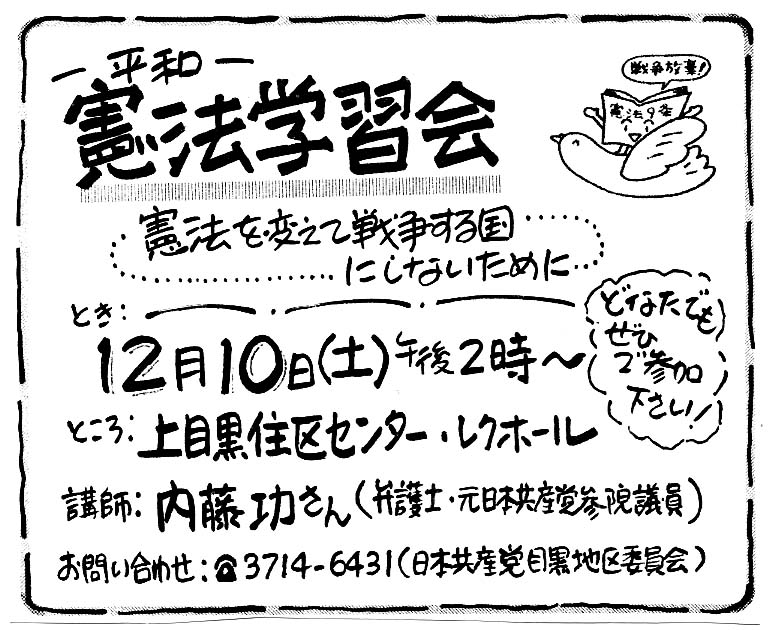 ー平和ー
憲法学習会
戦争放棄!
憲法9条
憲法を変えて戦争する国
にしないために
とき:
12月10日(土)午後2時〜
ところ:上目黒住区センター・レクホール
どなたでも
ぜひ
ご参加
下さい!
講師:内藤功さん(弁護士・元日本共産党参院議員)
お問い合わせ:☎3714-6431(日本共産党目黒地区委員会)